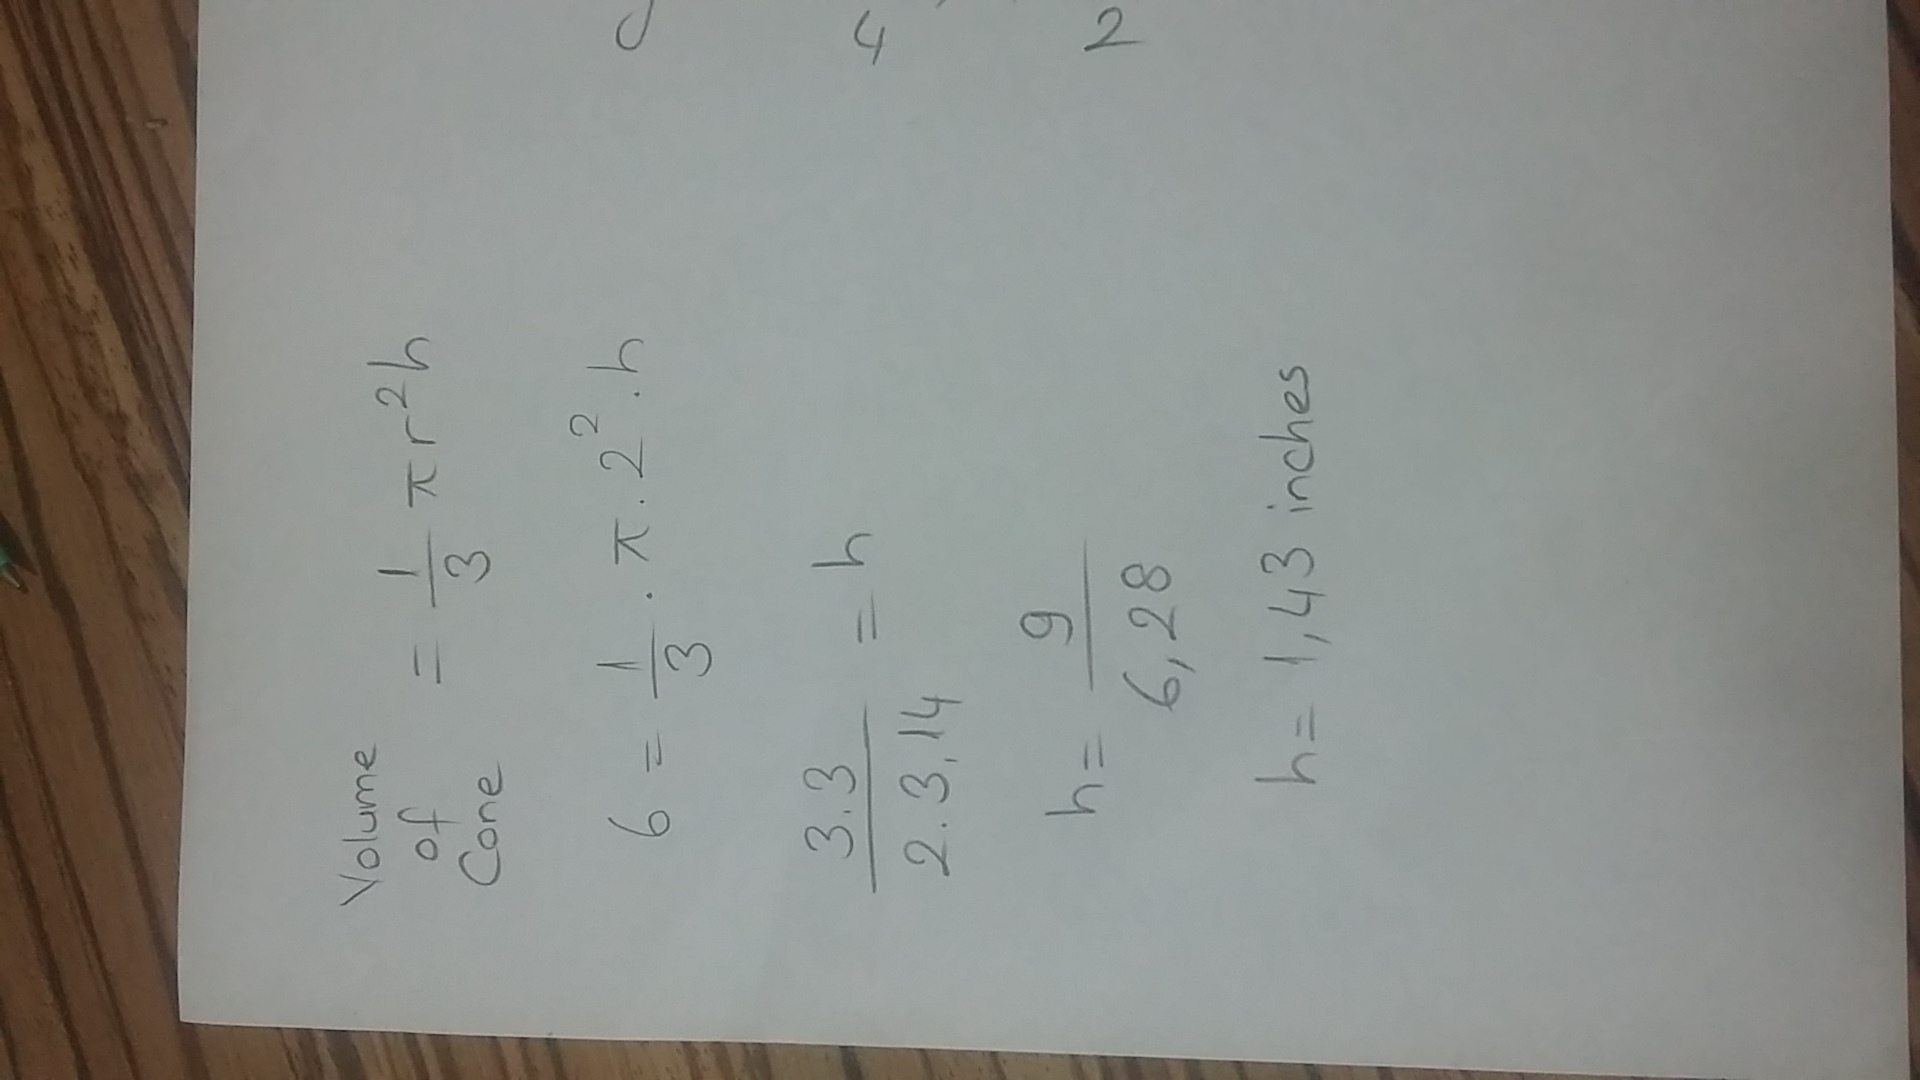 Volume of Cone = 1/3 π r²h
6 = 1/3 . π . 2² . h
3.3 / 2.3,14 = h
h = 9 / 6,28
h = 1,43 inches
4
2